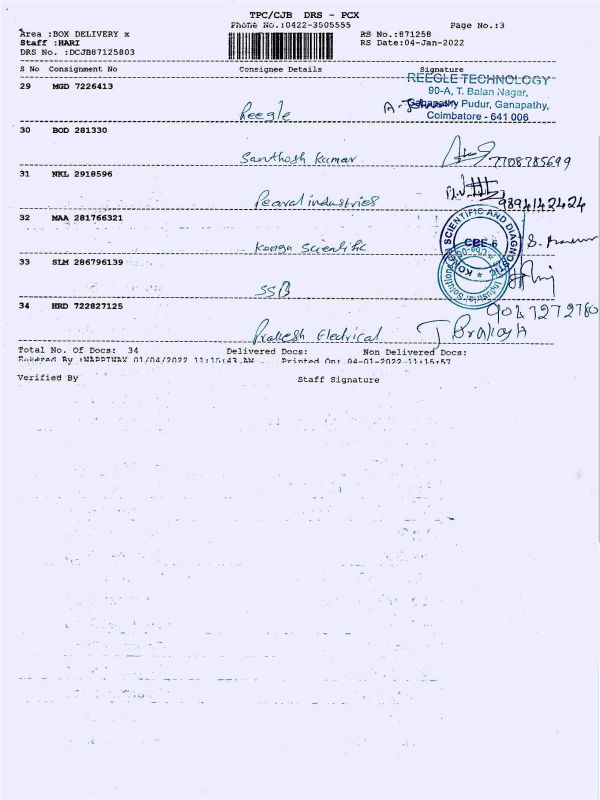 TPC/CJB DRS - PCX
Phone No.:0422-3505555 Page No.:3
Area :BOX DELIVERY x RS No.:871258
Staff :HARI RS Date:04-Jan-2022
DRS No. :DCJB87125803
S No Consignment No Consignee Details Signature
REEGLE TECHNOLOGY
29 MGD 7226413
90-A, T. Balan Nagar,
Ganapathy Pudur, Ganapathy,
Reegle Coimbatore - 641 006
30 BOD 281330
Santhosh Kumar 7708785699
31 NKL 2918596
Pearal industries 9894142424
32 MAA 281766321
SCIENTIFIC AND DIAGNOSTIC
CBE-6
Kongu Scientific
33 SLM 286796139
SSB
34 HRD 722827125
Prakesh Electrical
Total No. Of Docs: 34 Delivered Docs: Non Delivered Docs:
Entered By :NAPPINAY 01/04/2022 11:15:43 AM Printed On: 04-01-2022 11:15:57
Verified By Staff Signature